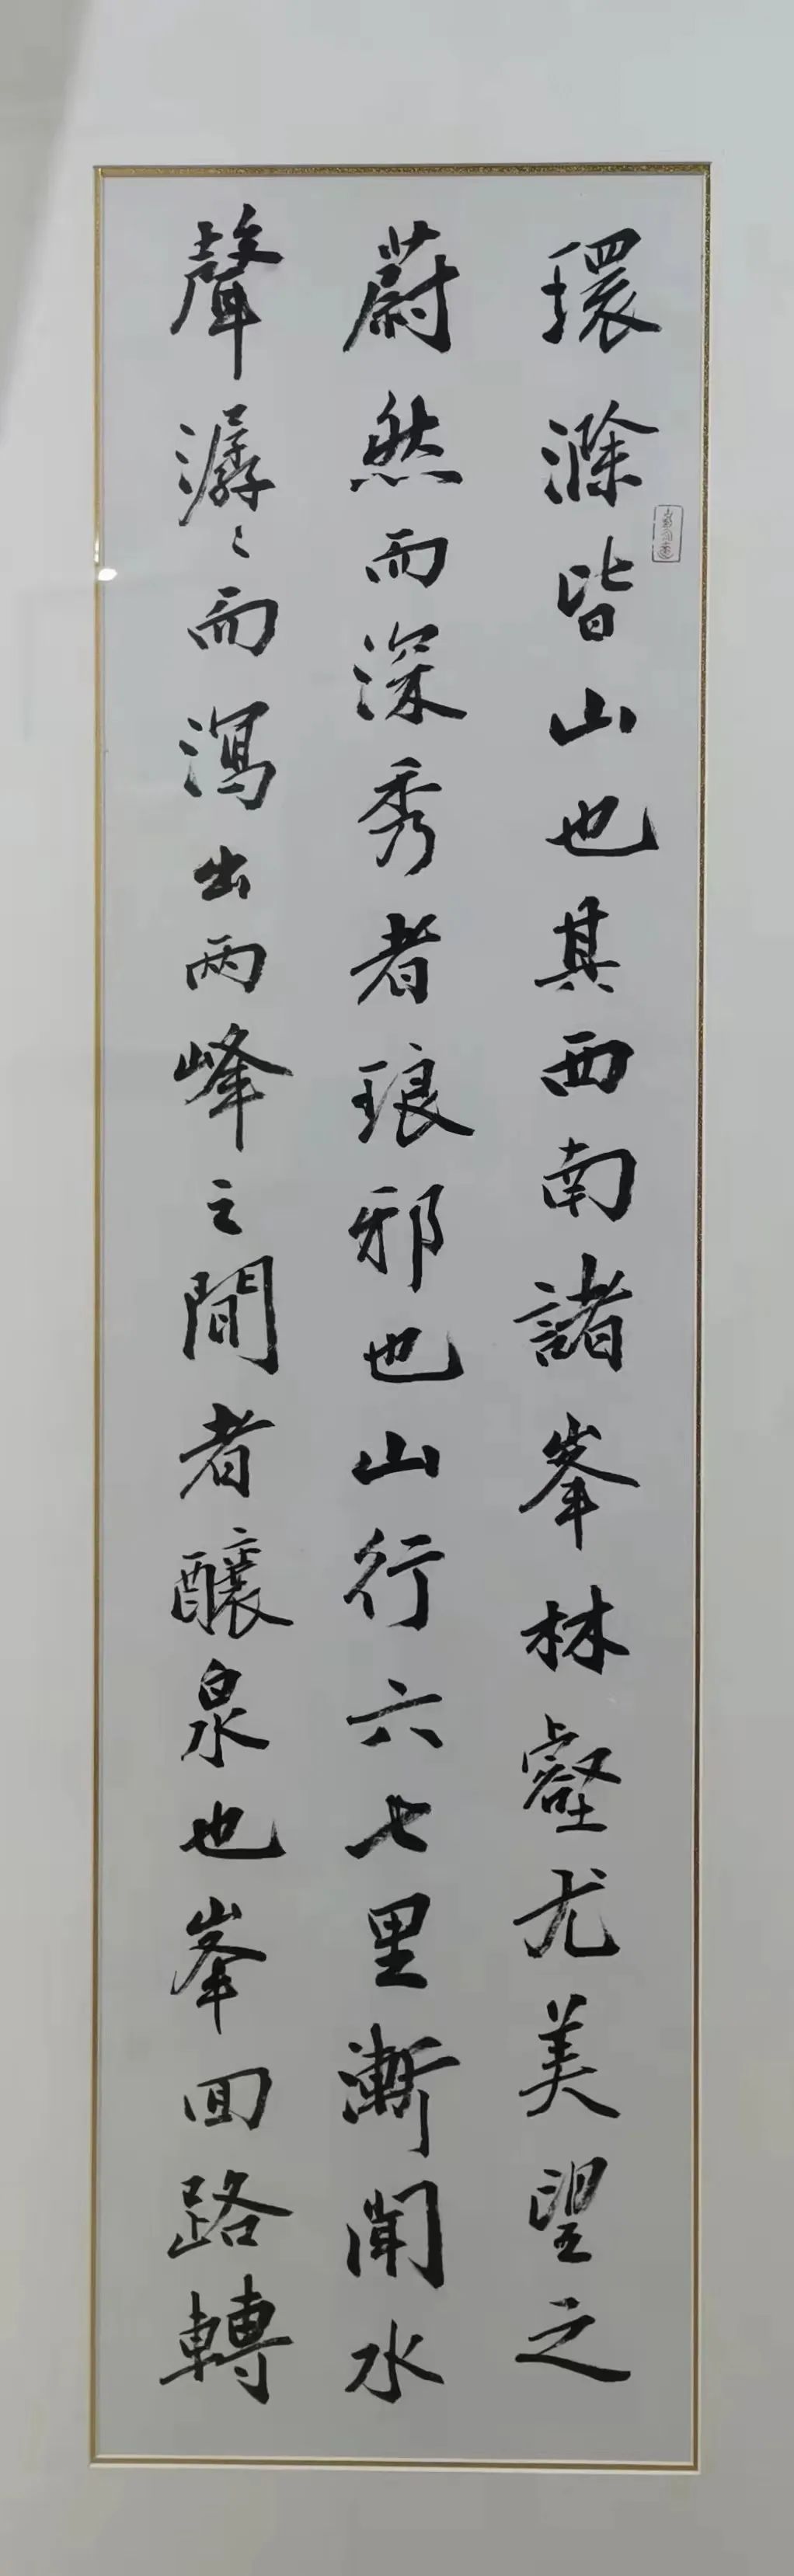 環滁皆山也其西南諸峯林壑尤美望之
蔚然而深秀者琅邪也山行六七里漸聞水
聲潺〻而瀉出兩峰之間者釀泉也峯回路轉